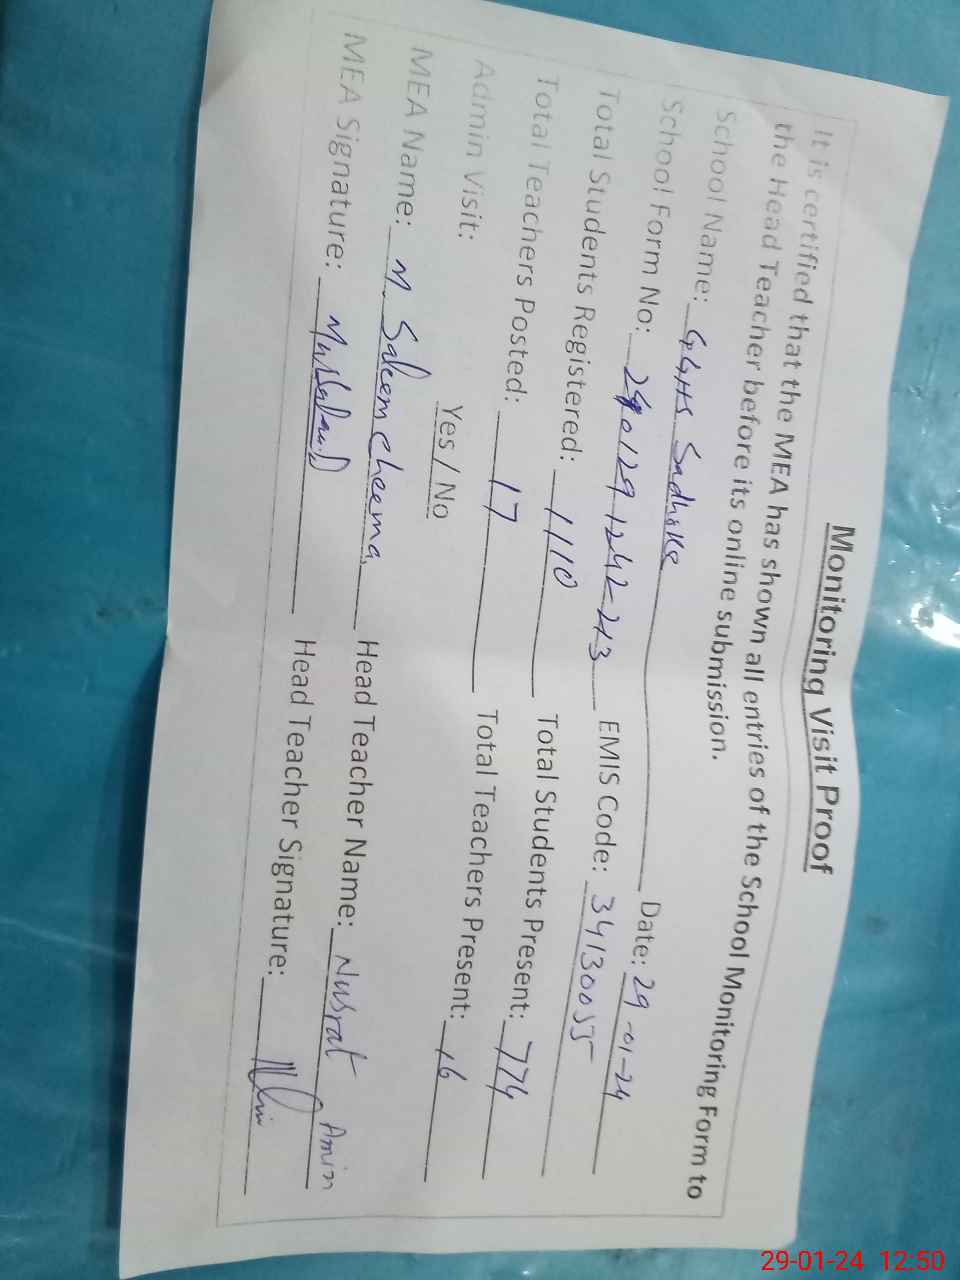 Monitoring Visit Proof
It is certified that the MEA has shown all entries of the School Monitoring Form to
the Head Teacher before its online submission.
School Name: GGHS Sadhoke Date: 29-01-24
School Form No: EMIS Code: 34130055
Total Students Registered: 1110 Total Students Present: 774
Total Teachers Posted: 17 Total Teachers Present: 16
Admin Visit: Yes / No
MEA Name: M. Saleem cheema Head Teacher Name: Nusrat Amin
MEA Signature: Head Teacher Signature:
29-01-24 12:50